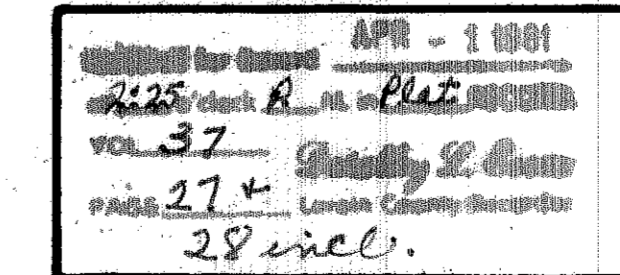 Received for Record APR - 1 1981
2:25 o'clock P M. in Plat
VOL 37
PAGE 27 +
Lorain County Recorder
28 incl.